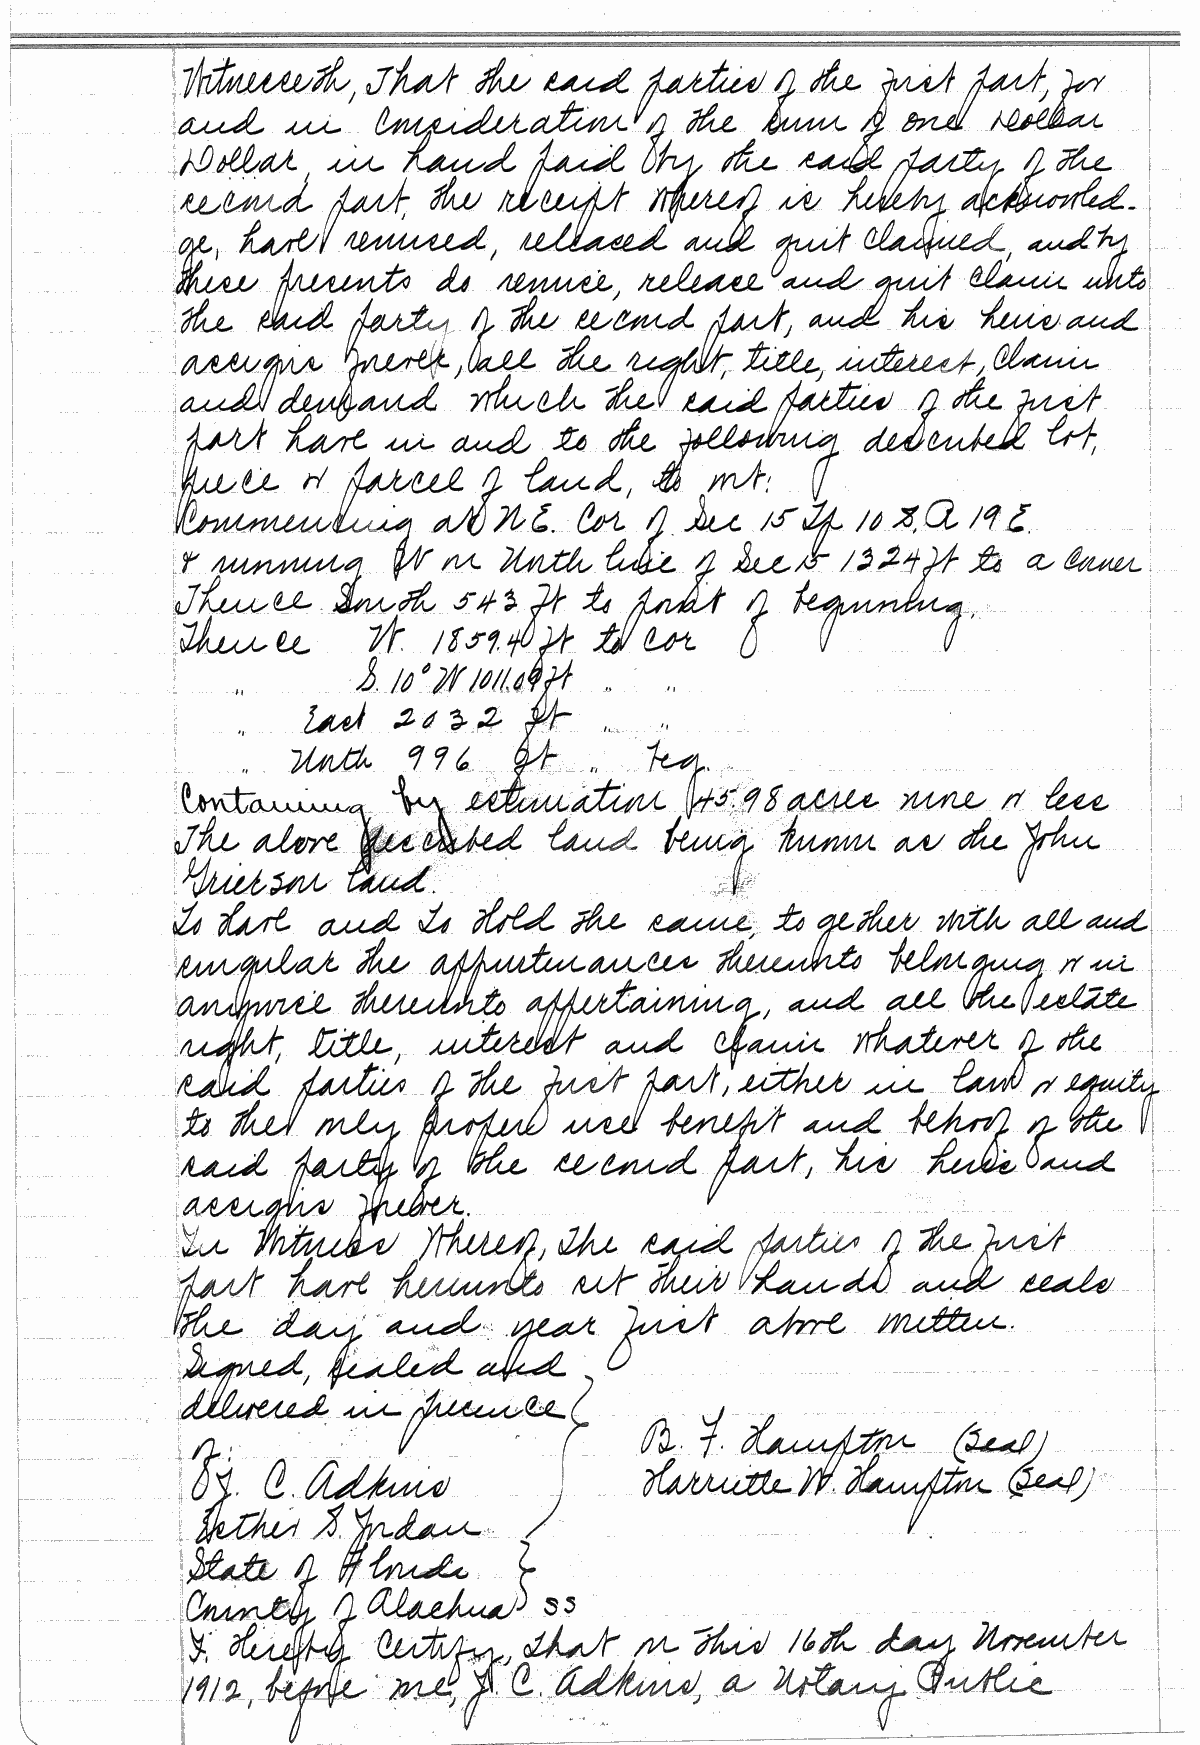 Witnesseth, That the said parties of the first part, for
and in Consideration of the sum of one Dollar
Dollar, in hand paid by the said party of the
second part, the receipt whereof is hereby acknowled-
ge, have remised, released and quit claimed, and by
these presents do remise, release and quit claim unto
the said party of the second part, and his heirs and
assigns forever, all the right, title, interest, claim
and demand which the said parties of the first
part have in and to the following described lot,
piece or parcel of land, to wit:
Commencing at N E. Cor of Sec 15 Tp 10 S. R 19 E.
& running W on North line of Sec 15 1324 ft to a Corner
Thence South 543 ft to point of beginning.
Thence W. 1859.4 ft to Cor
" S. 10° W 1011.09 ft " "
" East 2032 ft " "
" North 996 ft " Beg.
Containing by estimation 45.98 acres more or less
The above described land being known as the John
Grierson land.
To Have and To Hold the same, together with all and
singular the appurtenances thereunto belonging or in
anywise thereunto appertaining, and all the estate
right, title, interest and claim whatever of the
said parties of the first part, either in law or equity
to the only proper use benefit and behoof of the
said party of the second part, his heirs and
assigns forever.
In Witness Whereof, The said parties of the first
part have hereunto set their hands and seals
the day and year first above written.
Signed, sealed and
delivered in presence
of:
J. C. Adkins
Esther S. Jordan
B. F. Hampton (Seal)
Harriette W. Hampton (Seal)
State of Florida
County of Alachua SS
I. Hereby Certify, That on this 16th day November
1912, before me, J. C. Adkins, a Notary Public